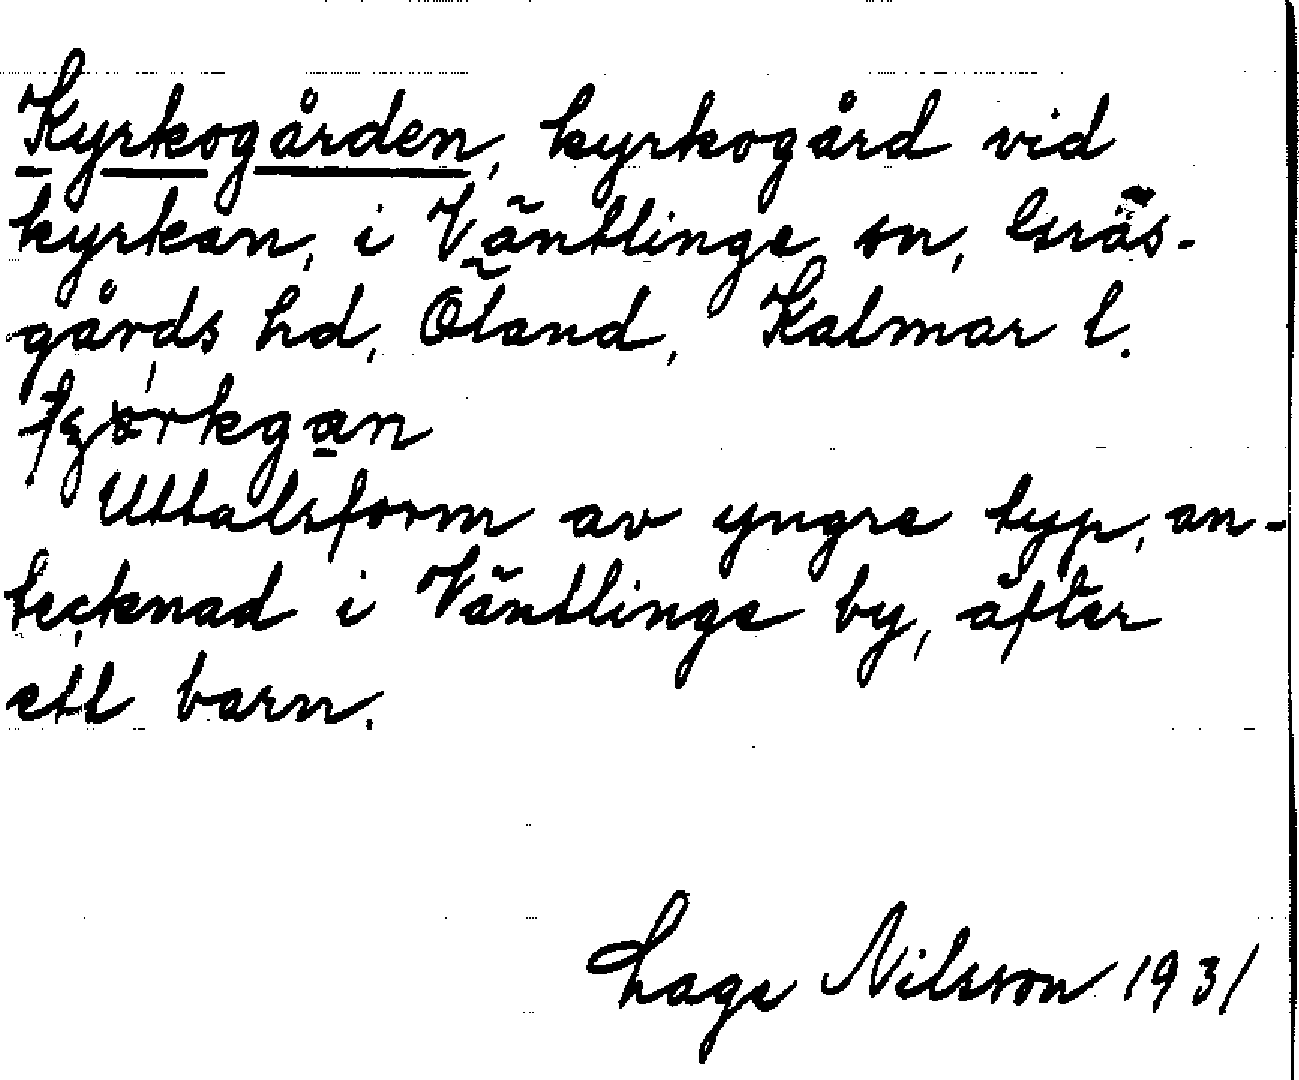 Kyrkogården, kyrkogård vid
kyrkan, i Väntlinge sn, Gräs-
gårds hd, Öland, Kalmar l.
Uttalsform av yngre typ, an-
tecknad i Väntlinge by, äfter
ett barn.
Lage Nilsson 1931